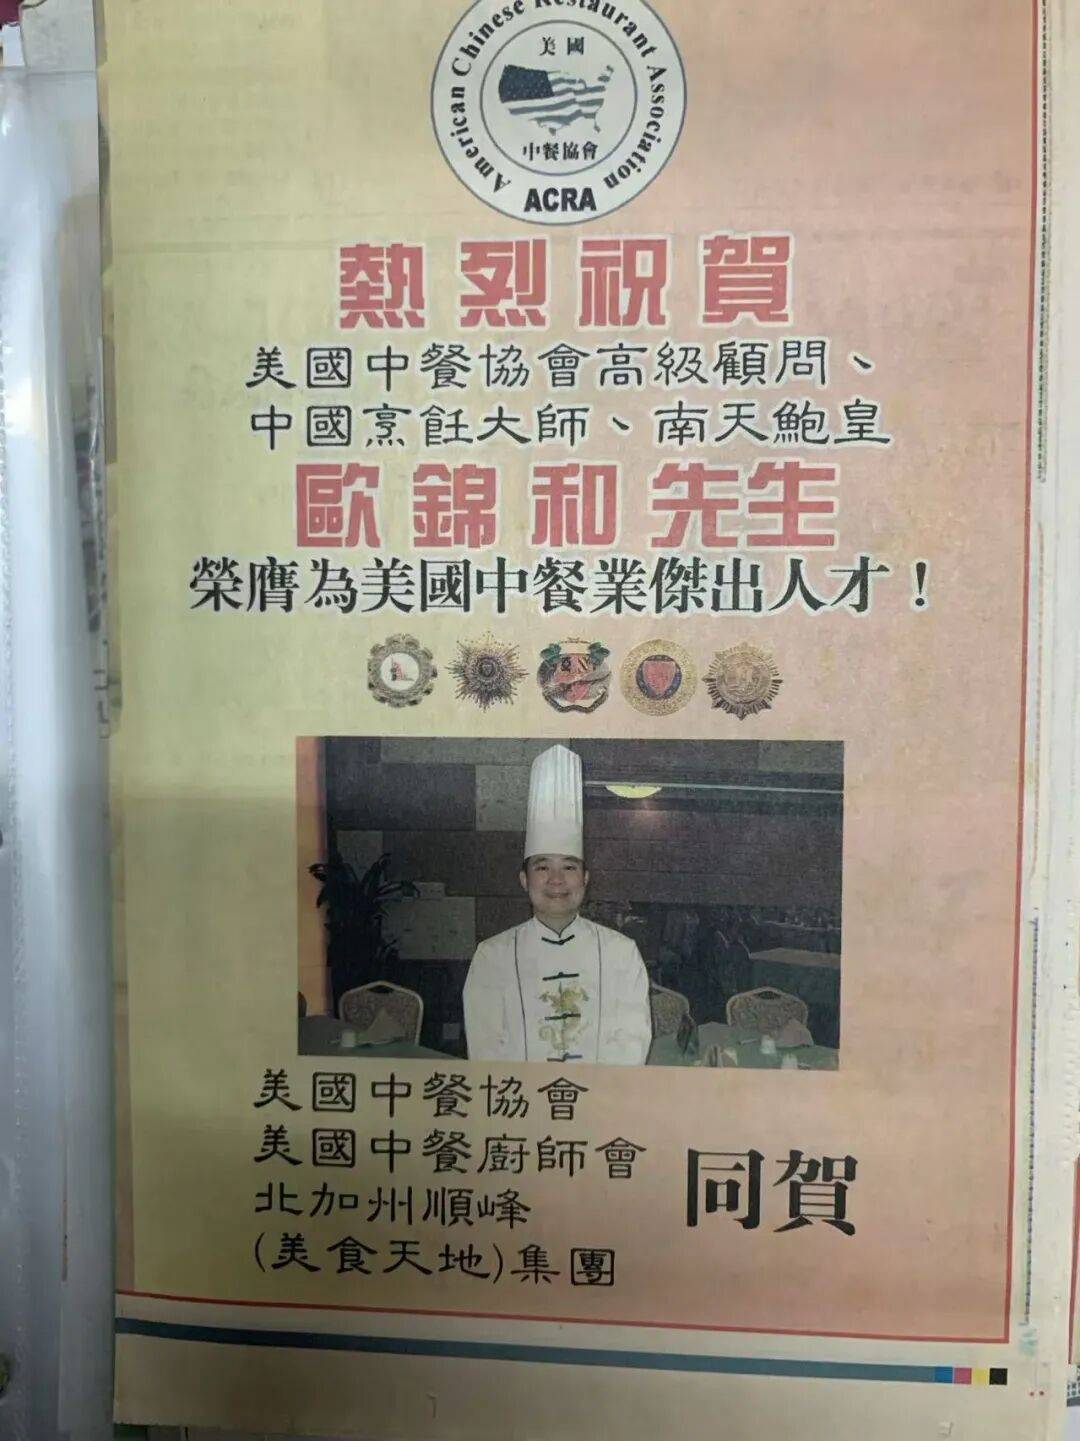 American Chinese Restaurant Association
美國
中餐協會
ACRA
熱烈祝賀
美國中餐協會高級顧問、
中國烹飪大師、南天鮑皇
歐錦和先生
榮膺為美國中餐業傑出人才！
美國中餐協會
美國中餐廚師會
北加州順峰
(美食天地)集團
同賀